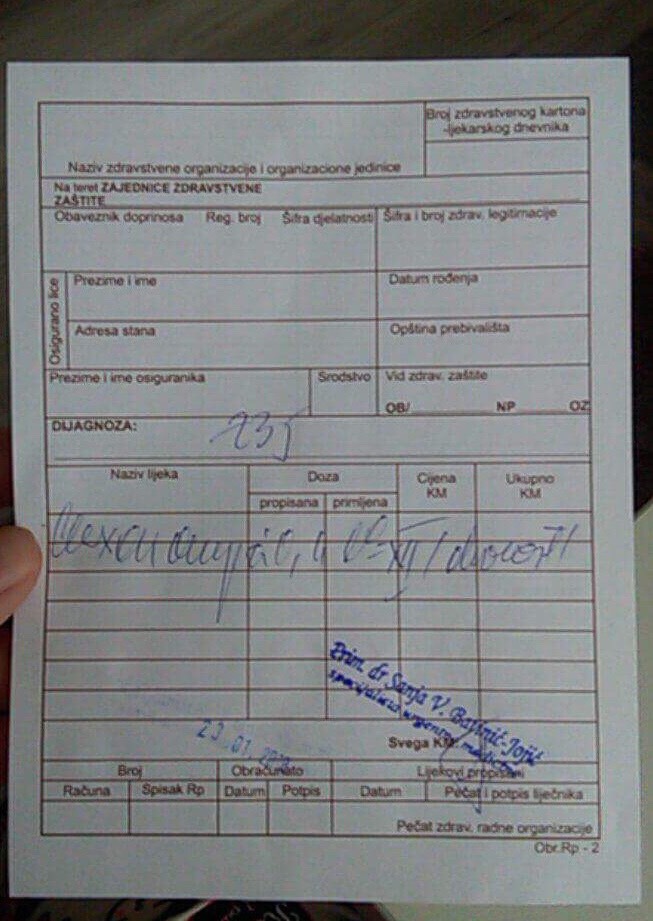 Broj zdravstvenog kartona
-ljekarskog dnevnika
Naziv zdravstvene organizacije i organizacione jedinice
Na teret ZAJEDNICE ZDRAVSTVENE
ZAŠTITE
Obaveznik doprinosa Reg. broj Šifra djelatnosti Šifra i broj zdrav. legitimacije
Osigurano lice
Prezime i ime Datum rođenja
Adresa stana Opština prebivališta
Prezime i ime osiguranika Srodstvo Vid zdrav. zaštite
OB/ NP OZ
DIJAGNOZA:
Naziv lijeka Doza Cijena KM Ukupno KM
propisana primljena
Prim. dr Sanja V.
23 01
Svega KM:
Broj Obračunato Lijekovi propisani
Računa Spisak Rp Datum Potpis Datum Pečat i potpis liječnika
Pečat zdrav. radne organizacije
Obr.Rp - 2